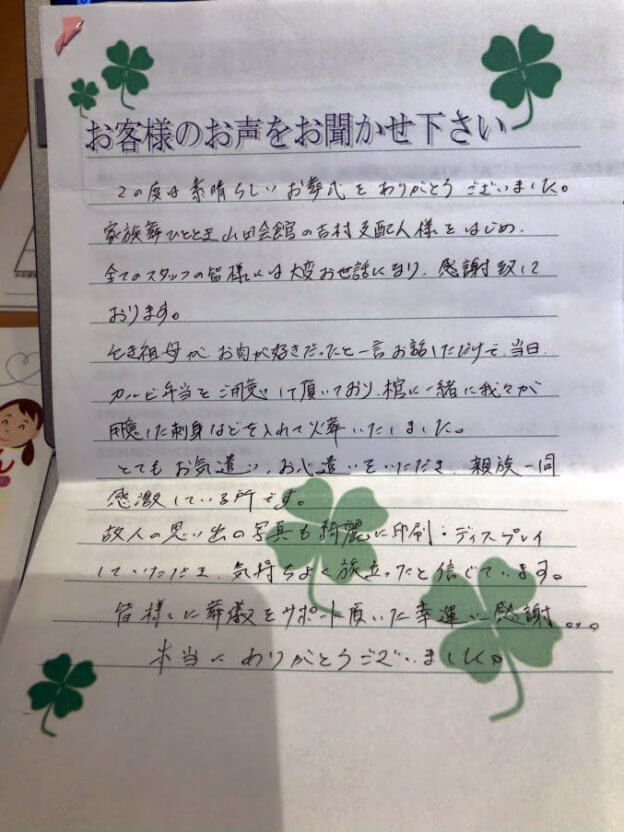 お客様のお声をお聞かせ下さい
この度は素晴らしいお葬式をありがとうございました。
家族葬ひととき山田会館の吉村支配人様をはじめ、
全てのスタッフの皆様には大変お世話になり、感謝致して
おります。
亡き祖母が、お肉が好きだったと一言お話しただけで、当日、
カルビ弁当をご用意して頂いており、棺に一緒に我々が
用意した刺身などを入れて火葬いたしました。
とてもお気遣い、お心遣いをいただき、親族一同
感激している所です。
故人の思い出の写真も綺麗に印刷・ディスプレイ
していただき、気持ちよく旅立ったと信じています。
皆様に葬儀をサポート頂いた幸運に感謝...。
本当にありがとうございました。
ん